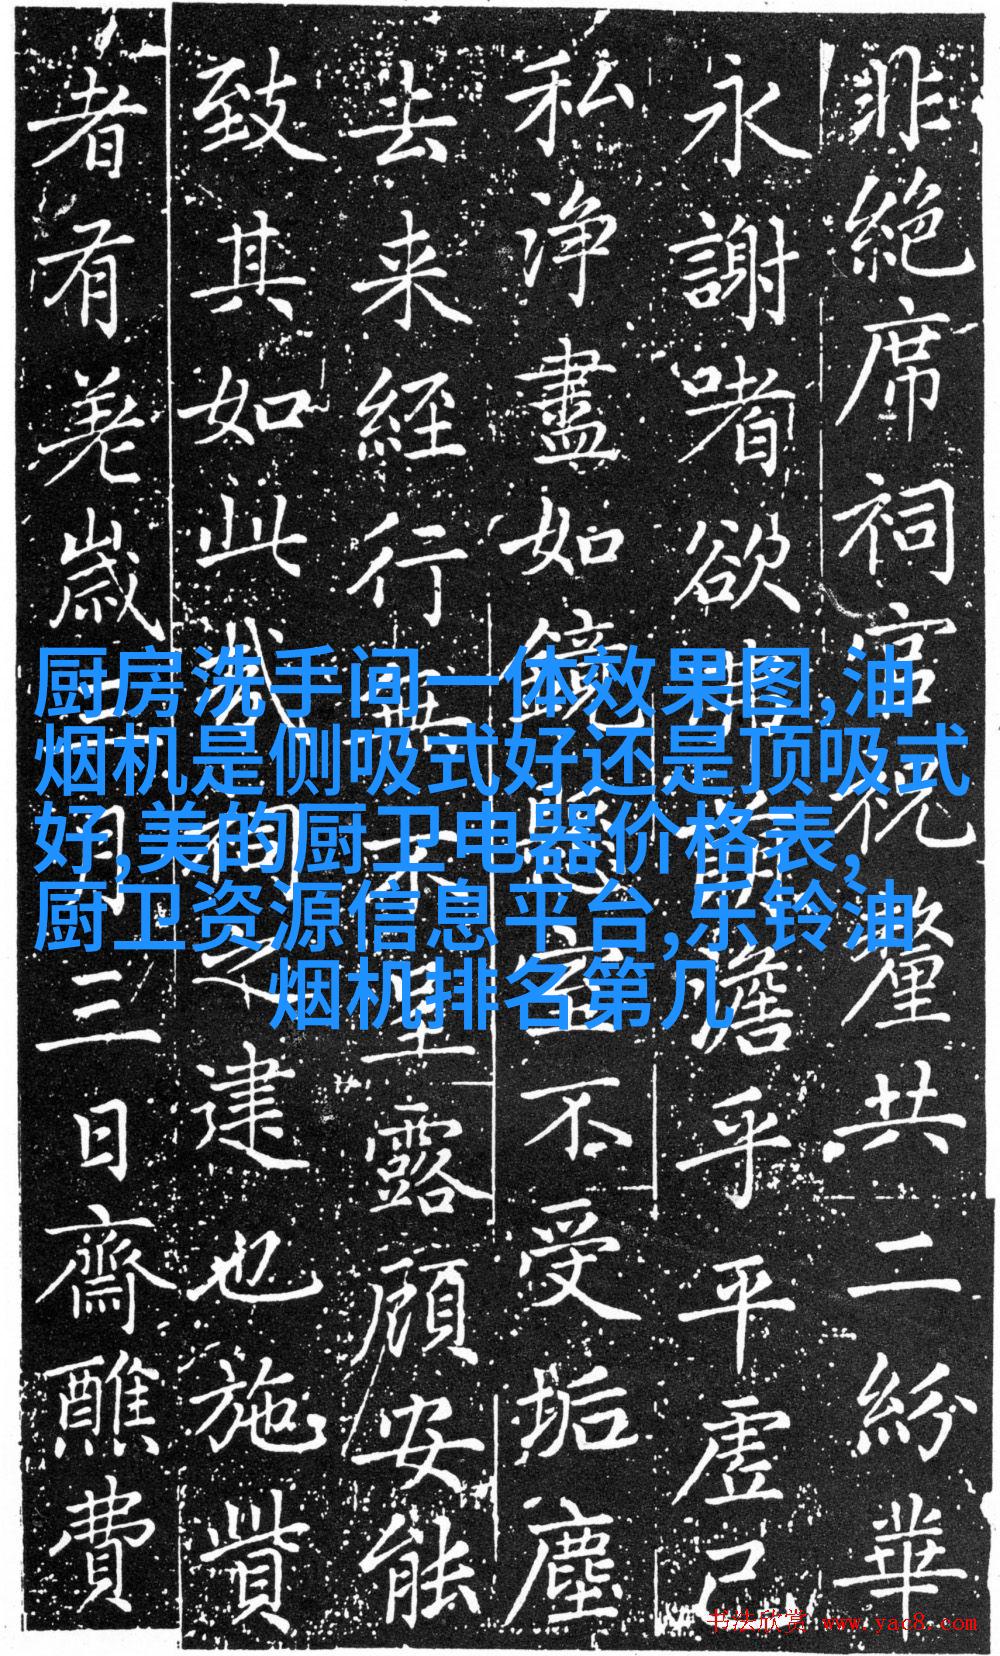 非絶席祠官祝釐共二紛華
永謝嗜欲澹乎平虚己
私浄盡如鏡不受垢塵
去来経行無露顧安能
致其如此哉祠之建也施貲
者有歳月三日齋醮費
厨房洗手间一体效果图,油
烟机是侧吸式好还是顶吸式
好,美的厨卫电器价格表,
厨卫资源信息平台,乐铃油
烟机排名第几
书法欣赏 www.yac8.com